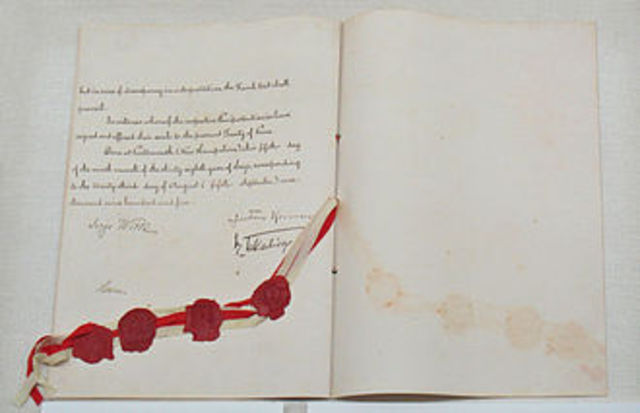 but in case of discrepancy in interpretation the French text shall
prevail.
In witness whereof, the respective Plenipotentiaries have
signed and affixed their seals to the present Treaty of Peace
Done at Portsmouth (New Hampshire) this fifth day
of the ninth month of the thirty eighth year of Meiji, corresponding
to the twenty third day of August (fifth September) one
thousand nine hundred and five.
Serge Witte
Jutaro Komura
K. Takahira